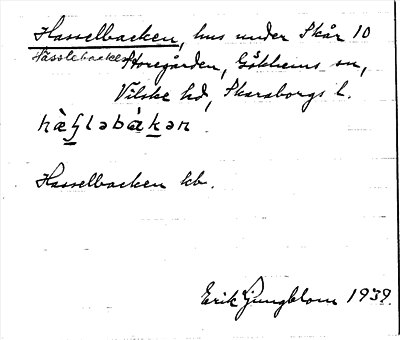 Hasselbacken, hus under Skår 10
Hässlebacken Storegården, Gökhems sn,
Vilske hd, Skaraborgs l.
Hasselbacken kb.
Erik Ljungblom 1939.